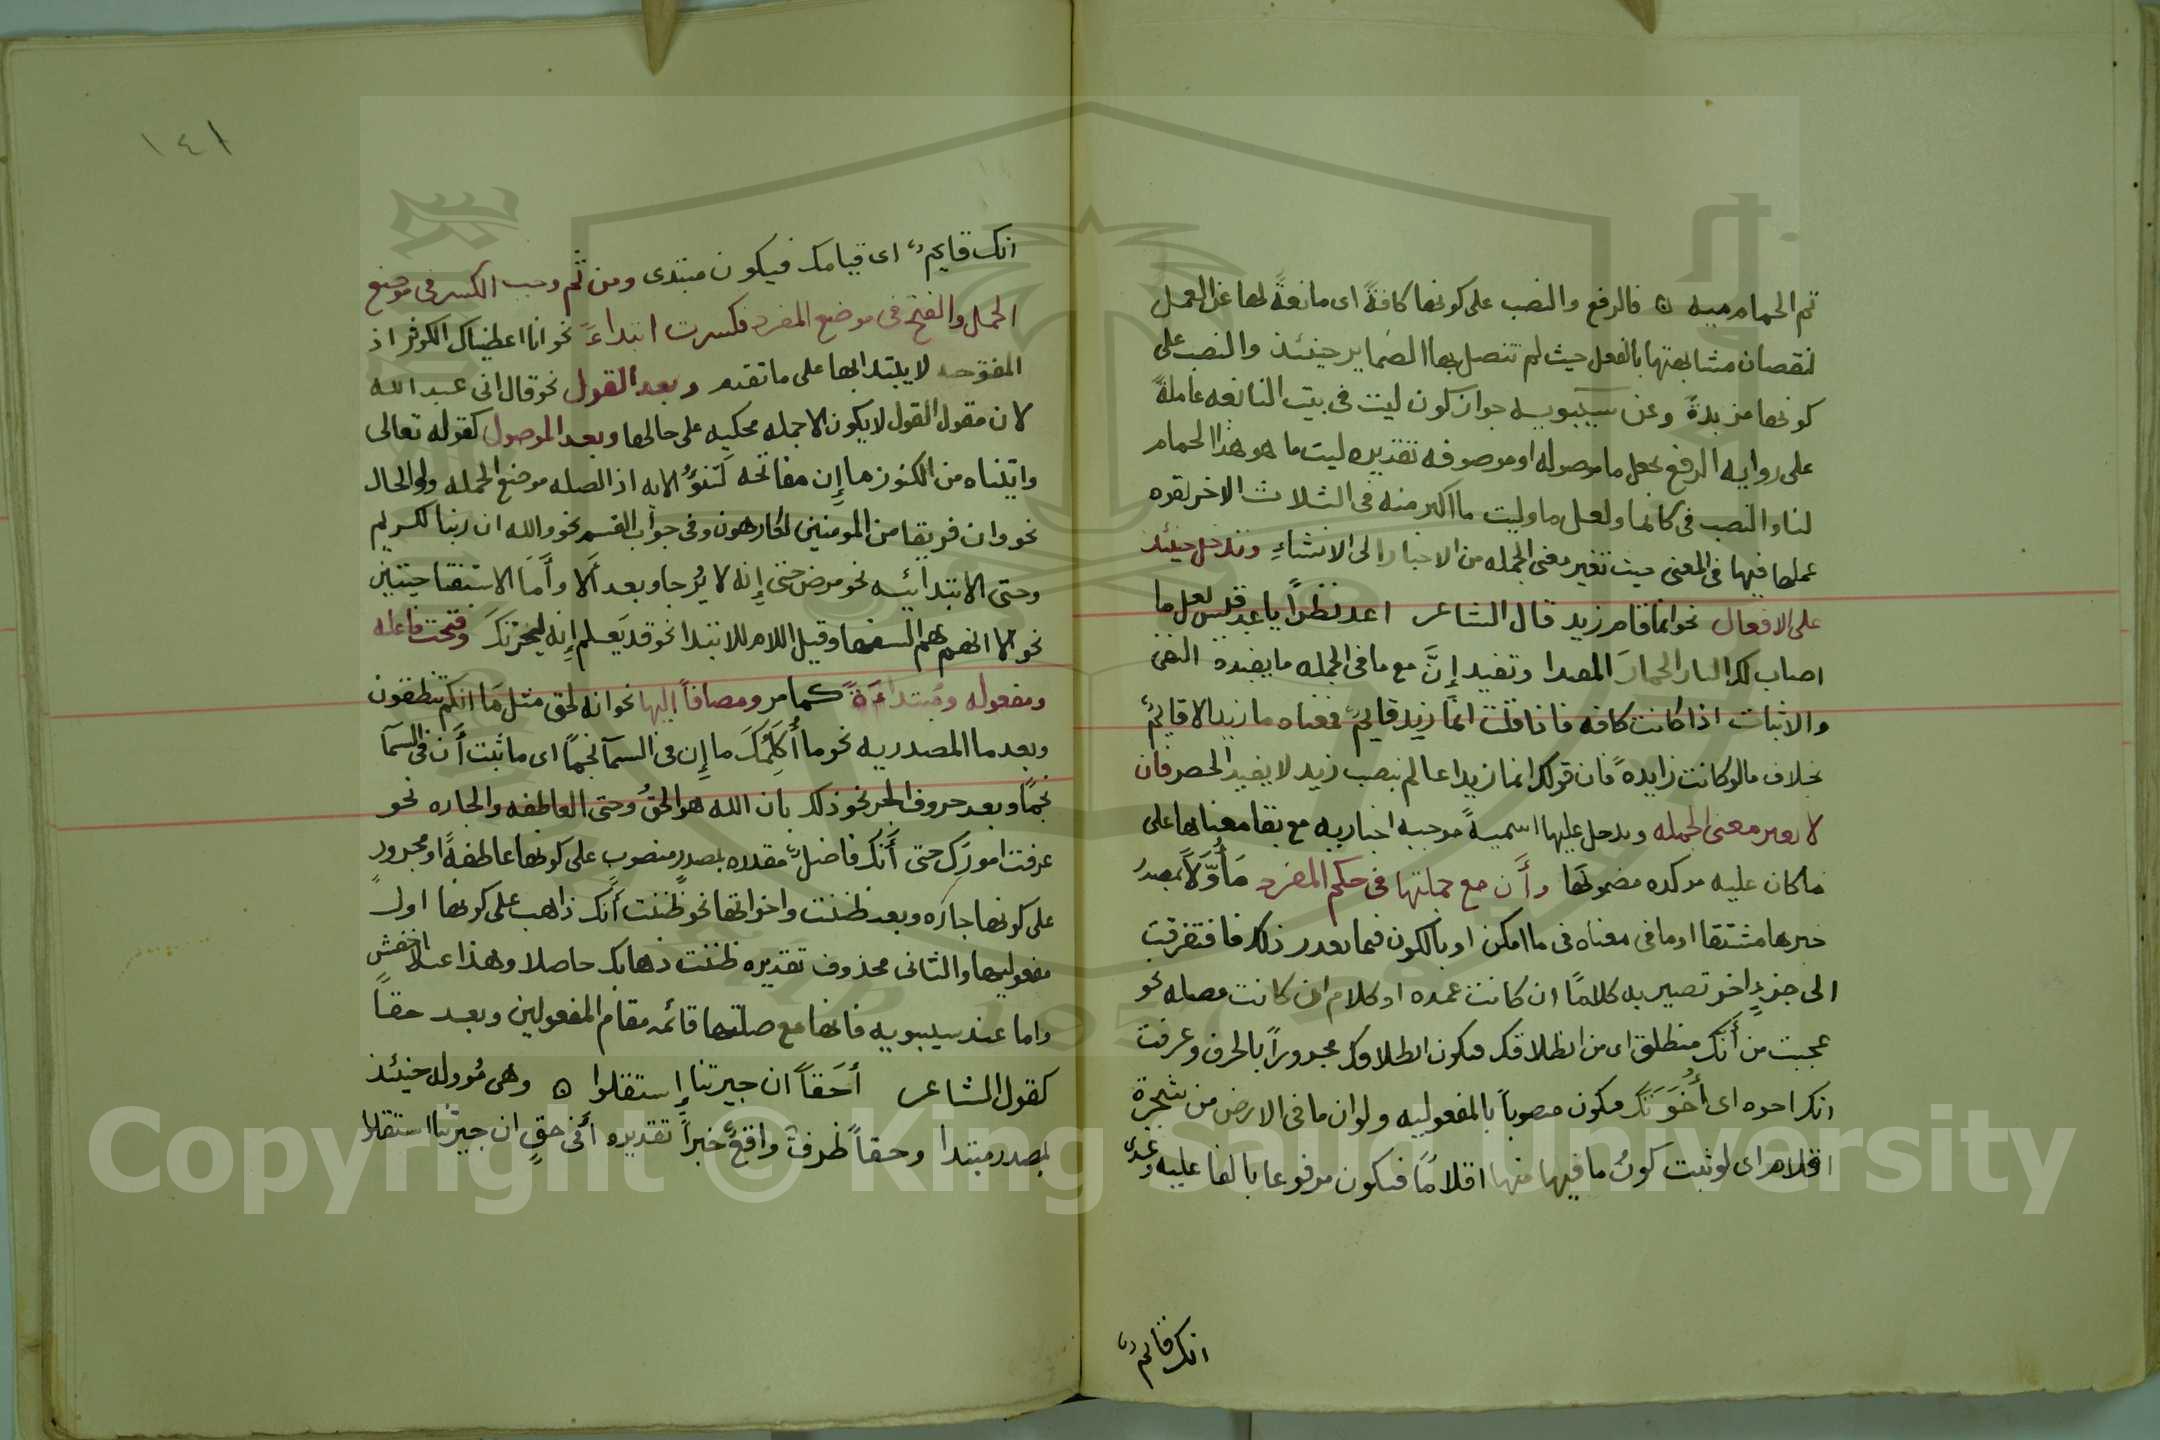 تم الحمام ميه ۞ فالرفع والنصب على كونها كافةً اى مانعةً لها عن العمل
لنقصان مشابهتها بالفعل حيث لم تتصل بها الضماير حينئذ والنصب على
كونها مزيدةً وعن سيبويه جواز كون ليت فى بيت النابغه عاملةً
على روايه الرفع بجعل ما موصوله او موصوفه تقديره ليت ما هو هذا الحمام
لنا والنصب فى كانما ولعل ما وليت ما اكبر منه فى الثلاث الاخر لقوه
عملها فيها فى المعنى حيث تغير معنى الجمله من الاخبار الى الانشاءِ وتدخل حينئذ
على الافعال نحو انما قام زيد قال الشاعر اعد نظراً يا عبد قيس لعل ما
اضات لك النار الحمارَ المقيدا وتفيد إنَّ مع ما فى الجمله ما يفيده النفى
والاثبات اذا كانت كافه فاذا قلت انما زيد قايمٌ فمعناه ما زيد الا قايمٌ
بخلاف ما لو كانت زايدهً فان قولك انما زيدا عالم بنصب زيد لا يفيد الحصر فان
لا تغير معنى الجمله وتدخل عليها اسميةً موجبه اخباريه مع بقا معناها على
ما كان عليه موكده مضمونها وأَن مع جملتها فى حكم المفرد مَأُوَّلاً بمصدر
خبرها مشتقا او ما فى معناه فى ما امكن او بالكون فيما تعذر ذلك فافتقرت
الى جزءٍ اخر تصير به كلامًا ان كانت عمده او كلام ان كانت فضله نحو
عجبت من أَنك منطلق اى من انطلاقك فيكون انطلاقك مجروراً بالحرف وعرفت
انك اخوه اى أُخُوَّتَك فيكون منصوباً بالمفعوليه ولو ان ما فى الارض من شجرة
اقلام اى لو ثبت كونُ ما فيها منها اقلامًا فيكون مرفوعا بالفاعليه وعندى
انك قائمٌ
١٤١
انك قايمٌ اى قيامك فيكون مبتدى ومن ثم وجب الكسر فى موضع
الجمل والفتح فى موضع المفرد فكسرت ابتداءً نحو انا اعطيناك الكوثر اذ
المفتوحه لا يبتدا بها على ما تقدم وبعد القول نحو قال انى عبد الله
لان مقول القول لا يكون الا جمله محكيه على حالها وبعد الموصول كقوله تعالى
واتيناه من الكنوز ما إِن مفاتحه لَتنوُٓ الايه اذ الصله موضع الجمله واو الحال
نحو وان فريقا من المومنين لكارهون وفى جواب القسم نحو والله ان ربنا لكريم
وحتى الابتدائيه نحو مرض حتى إِنه لا يُرجا وبعد أَلا وأَمَا الاستفتاحيتين
نحو الا انهم هم السفها وقبل اللام للابتدا نحو قد يَعلم إِنه ليحزنكَ وفتحت فاعله
ومفعوله ومُبتداءَةً كما مر ومضافاً اليها نحو انه لحق مثل مَا انكم تنطقون
وبعد ما المصدريه نحو ما أُكَلِّمُكَ ما إِن فى السمآ نجماً اى ما ثبت أَن فى السمآ
نجمًا وبعد حروف الجر نحو ذلك بان الله هو الحقُ وحتى العاطفه والجاره نحو
عرفت امورك حتى أَنك فاضلٌ مقدره بمصدر منصوبٍ على كونها عاطفةً او مجرورٍ
على كونها جاره وبعد ظننت واخواتها نحو ظننت أَنك ذاهب على كونها اول
مفعوليها والثانى محذوف تقديره ظننت ذهابك حاصلا وهذا عند الاخفش
واما عند سيبويه فانها مع صلتها قائمه مقام المفعولين وبعد حقاً
كقول الشاعر أحَقاً ان جيرتنا إِستقلوا ۞ وهى مُووله حينئذ
بمصدر مبتدا وحقاً ظرف واقعٌ خبراً تقديره أَفى حقٍ ان جيرتنا استقلوا
Copyright © King Saud University
1957